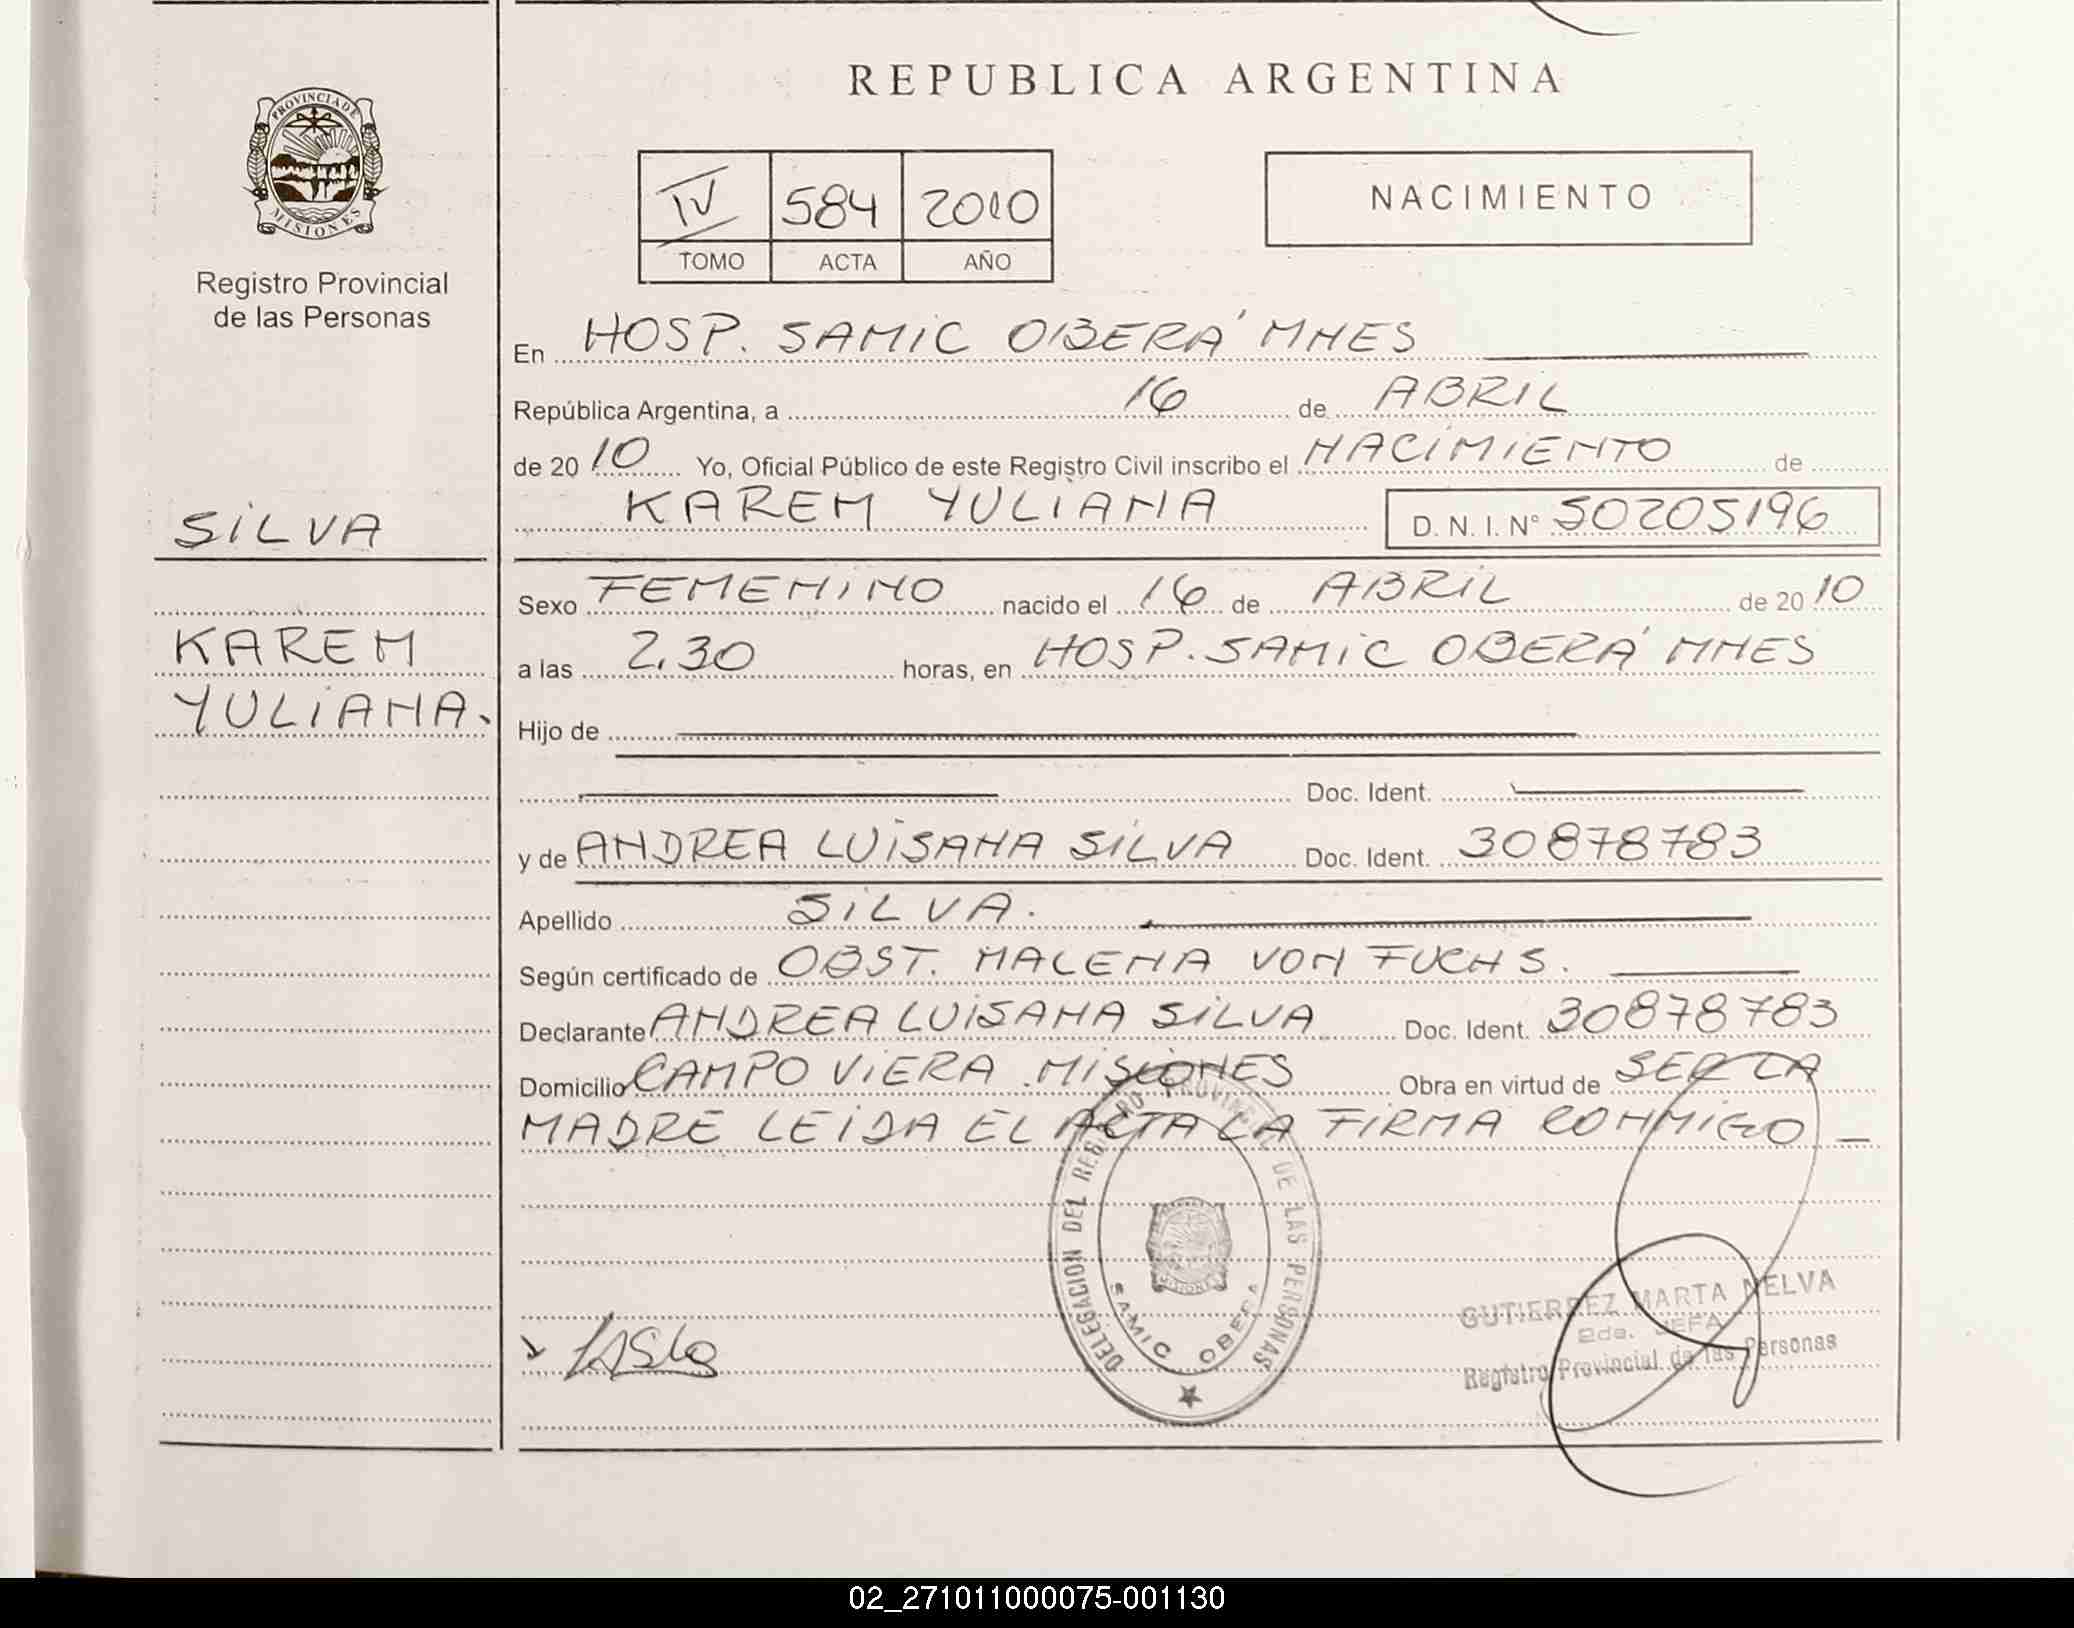 REPUBLICA ARGENTINA
PROVINCIA DE MISIONES
IV 584 2010
TOMO ACTA AÑO
NACIMIENTO
Registro Provincial
de las Personas
SILVA
KAREN
YULIANA.
En HOSP. SAMIC OBERÁ MNES
República Argentina, a 16 de ABRIL
de 20 10 Yo, Oficial Público de este Registro Civil inscribo el NACIMIENTO de
KAREN YULIANA D. N. I. N° 50205196
Sexo FEMENINO nacido el 16 de ABRIL de 20 10
a las 2.30 horas, en HOSP. SAMIC OBERÁ MNES
Hijo de
Doc. Ident.
y de ANDREA LUISANA SILVA Doc. Ident. 30878783
Apellido SILVA.
Según certificado de OBST. MALENA VON FUCHS.
Declarante ANDREA LUISANA SILVA Doc. Ident. 30878783
Domicilio CAMPO VIERA MISIONES Obra en virtud de SER LA
MADRE LEIDA EL ACTA LA FIRMA CONMIGO
DELEGACION DEL REGISTRO PROVINCIAL DE LAS PERSONAS
SAMIC OBERA
GUTIERREZ MARTA NELVA
2da. JEFA
Registro Provincial de las Personas
02_271011000075-001130